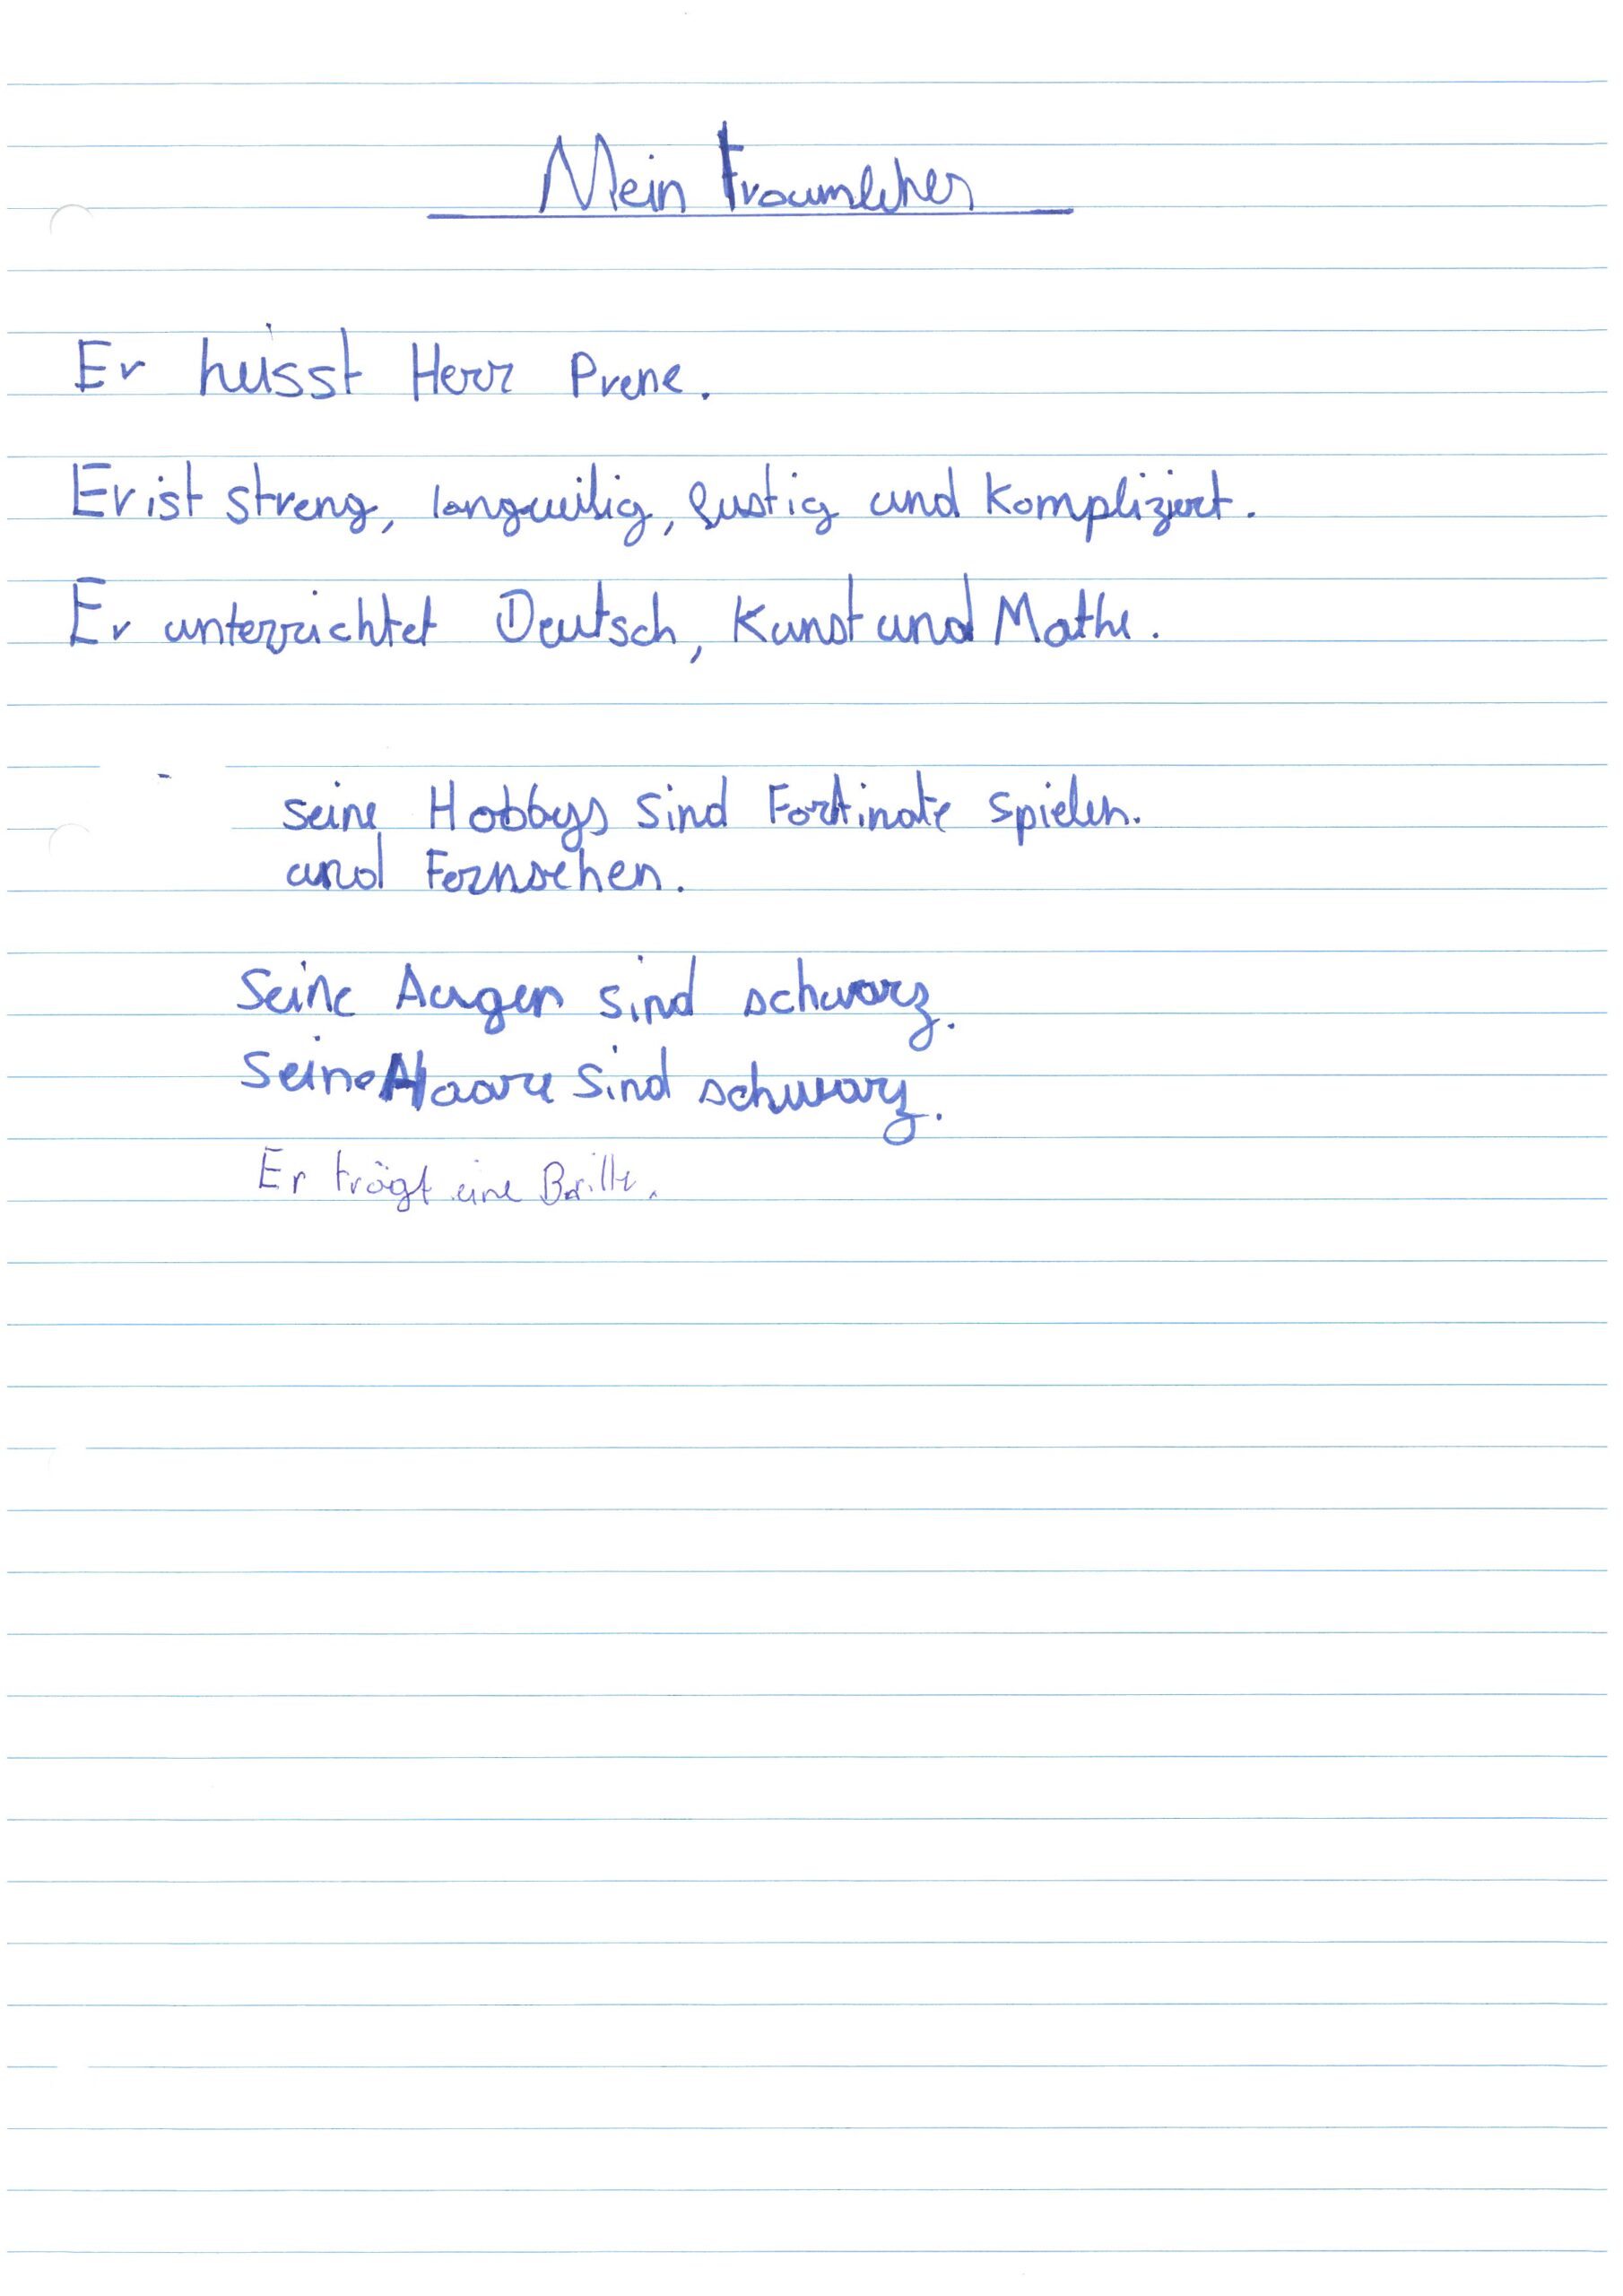 Mein Traumlehrer
Er heisst Herr Prene.
Er ist streng, langweilig, lustig und kompliziert.
Er unterrichtet Deutsch, Kunst und Mathe.
seine Hobbys sind Fortinate spielen.
und Fernsehen.
Seine Augen sind schwarz.
Seine Haare sind schwarz.
Er trägt eine Brille.